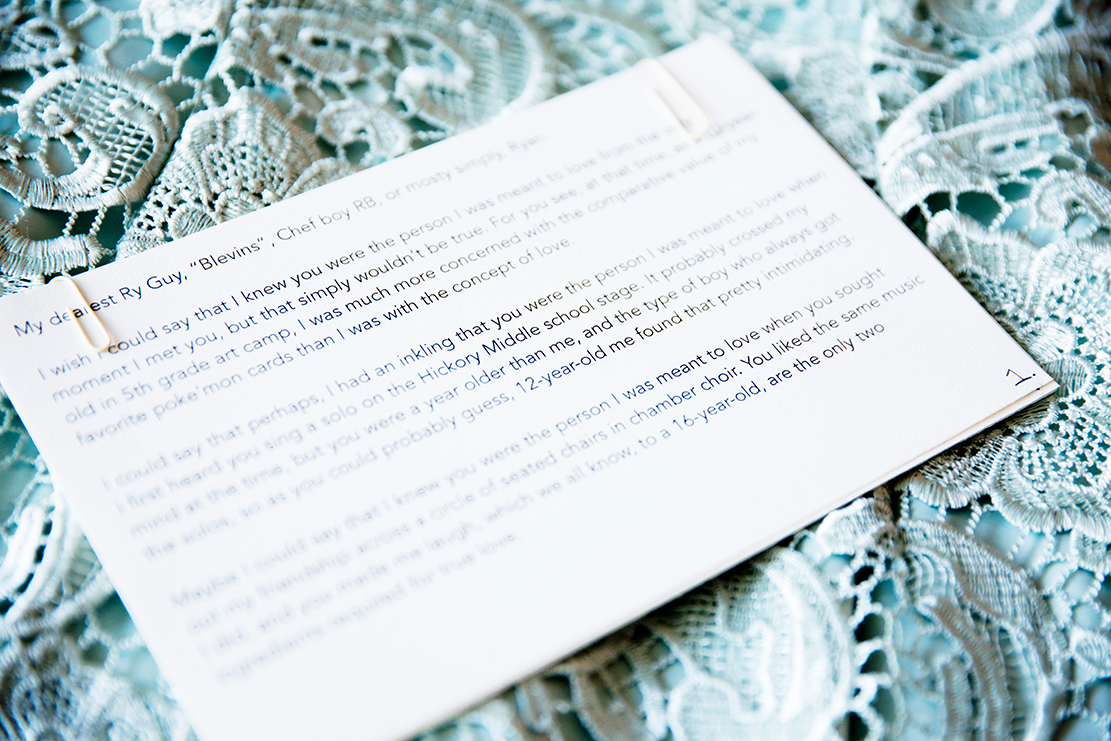 My dearest Ry Guy, "Blevins" , Chef boy RB, or mosty simply, Ryan,
I wish I could say that I knew you were the person I was meant to love from the
moment I met you, but that simply wouldn't be true. For you see, at that time, as
old in 5th grade art camp, I was much more concerned with the comparative value of my
favorite poke'mon cards than I was with the concept of love.
I could say that perhaps, I had an inkling that you were the person I was meant to love when
I first heard you sing a solo on the Hickory Middle school stage. It probably crossed my
mind at the time, but you were a year older than me, and the type of boy who always got
the solos, so as you could probably guess, 12-year-old me found that pretty intimidating.
Maybe I could say that I knew you were the person I was meant to love when you sought
out my friendship across a circle of seated chairs in chamber choir. You liked the same music
I did, and you made me laugh, which we all know, to a 16-year-old, are the only two
ingredients required for true love.
1.